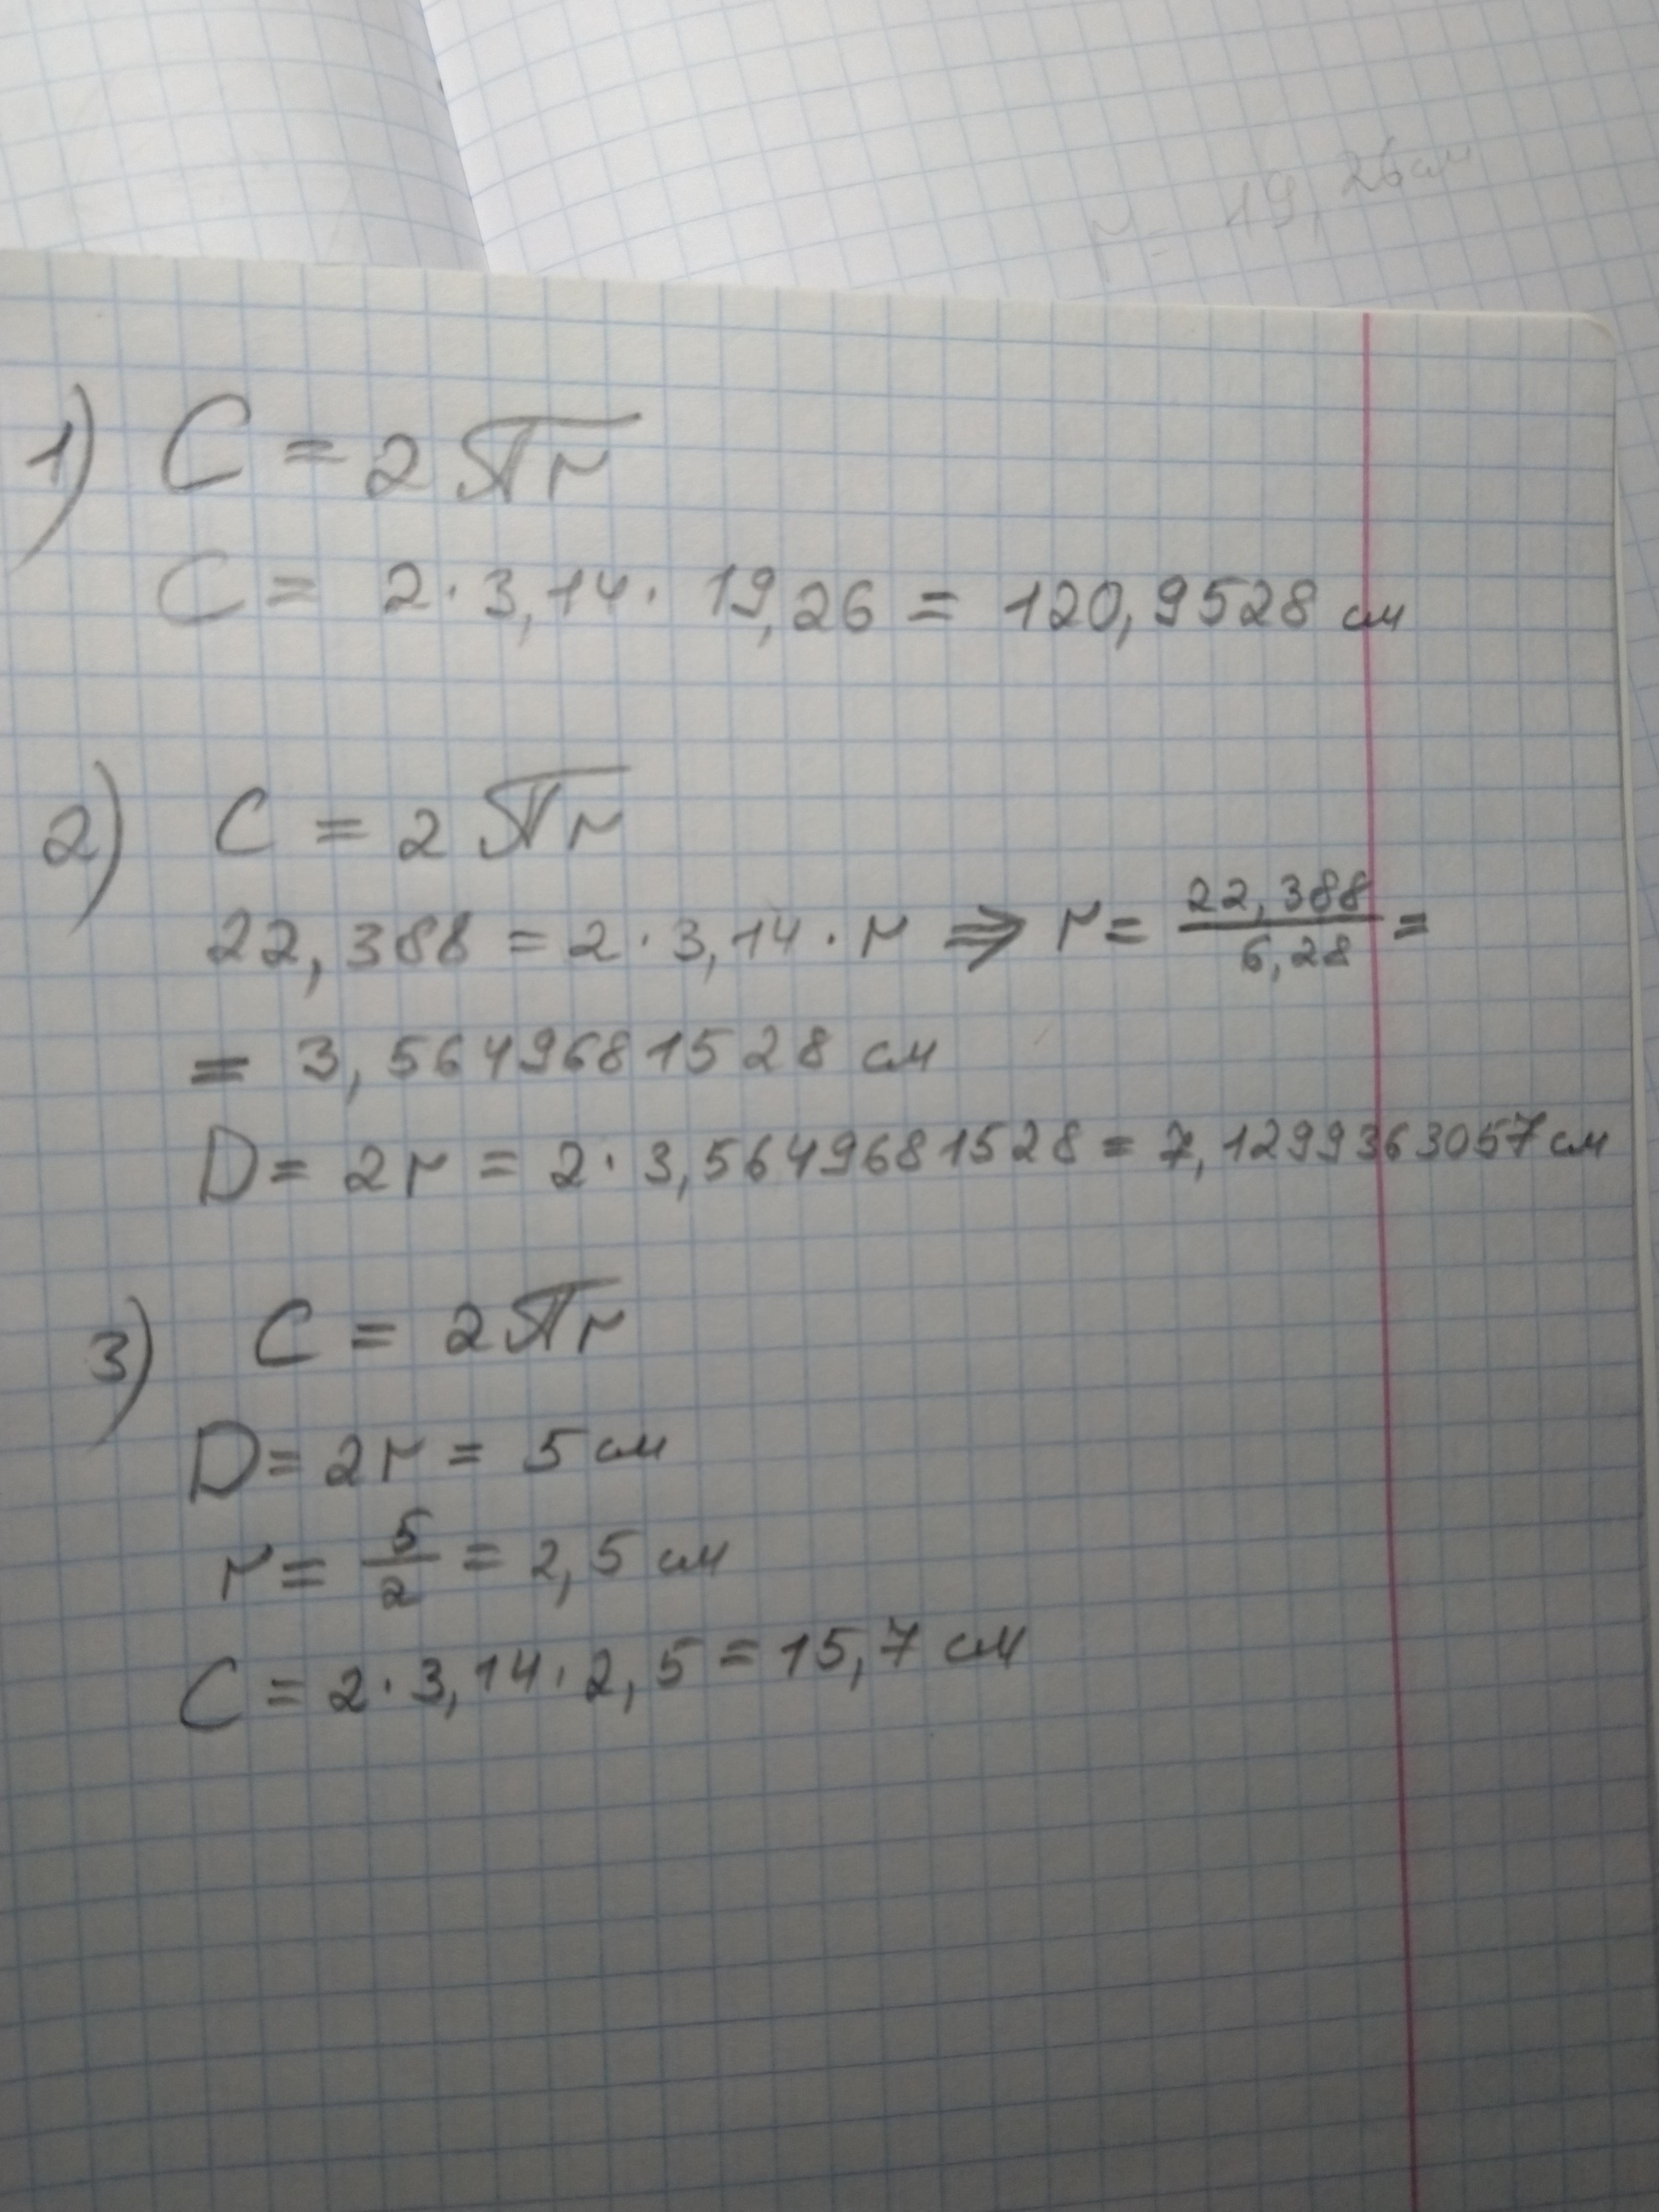 r = 19,26 см
1) C = 2πr
C = 2·3,14·19,26 = 120,9528 см
2) C = 2πr
22,388 = 2·3,14·r ⇒ r = 22,388/6,28 =
= 3,5649681528 см
D = 2r = 2·3,5649681528 = 7,1299363057 см
3) C = 2πr
D = 2r = 5 см
r = 5/2 = 2,5 см
C = 2·3,14·2,5 = 15,7 см